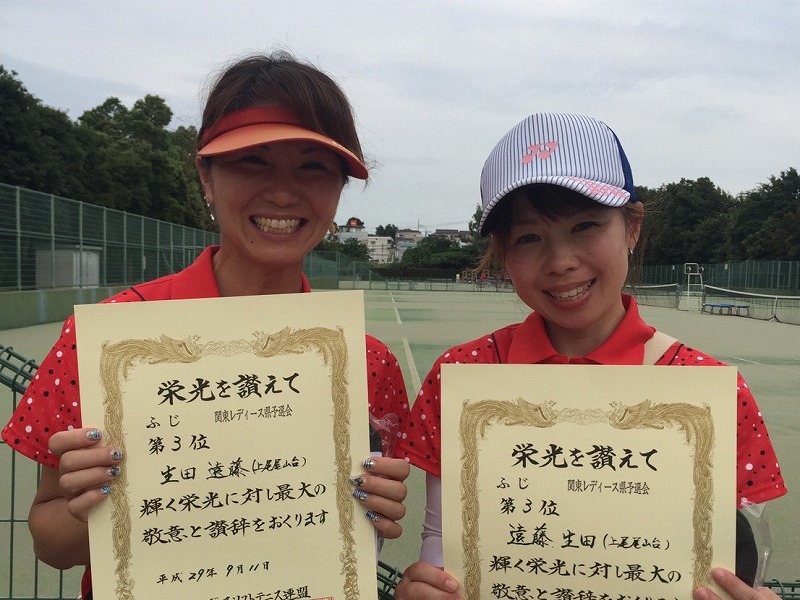 栄光を讃えて
ふじ 関東レディース県予選会
第3位
生田 遠藤(上尾尾山台)
輝く栄光に対し最大の
敬意と讃辞をおくります
平成29年9月11日
ソフトテニス連盟
栄光を讃えて
ふじ 関東レディース県予選会
第3位
遠藤 生田(上尾尾山台)
輝く栄光に対し最大の
敬意と讃辞をおくります